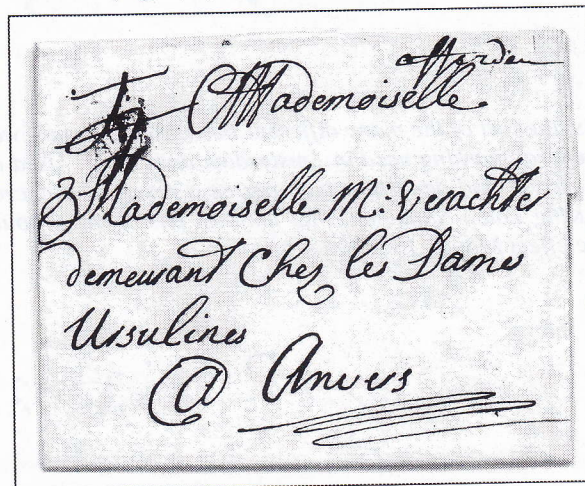 Mademoiselle
Mademoiselle M: Verachter
demeurant Chez les Dames
Ursulines
@ Anvers